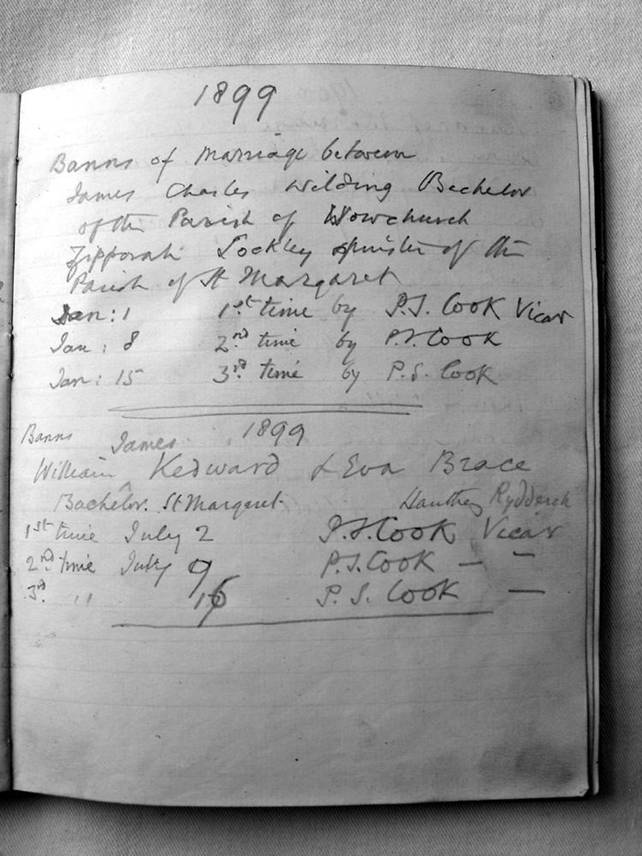 1899
Banns of Marriage between
James Charles Wilding Bachelor
of the Parish of Vowchurch
Zipporah Lockley spinster of the
Parish of St Margaret
Jan: 1 1st time by P.S. Cook Vicar
Jan: 8 2nd time by P.S. Cook
Jan: 15 3rd time by P.S. Cook
1899
Banns James
William Kedward & Eva Brace
Bachelor. St Margaret. Rydderch
1st time July 2 P.S. Cook Vicar
2nd time July 9 P.S. Cook — –
3rd " 16 P.S. Cook —